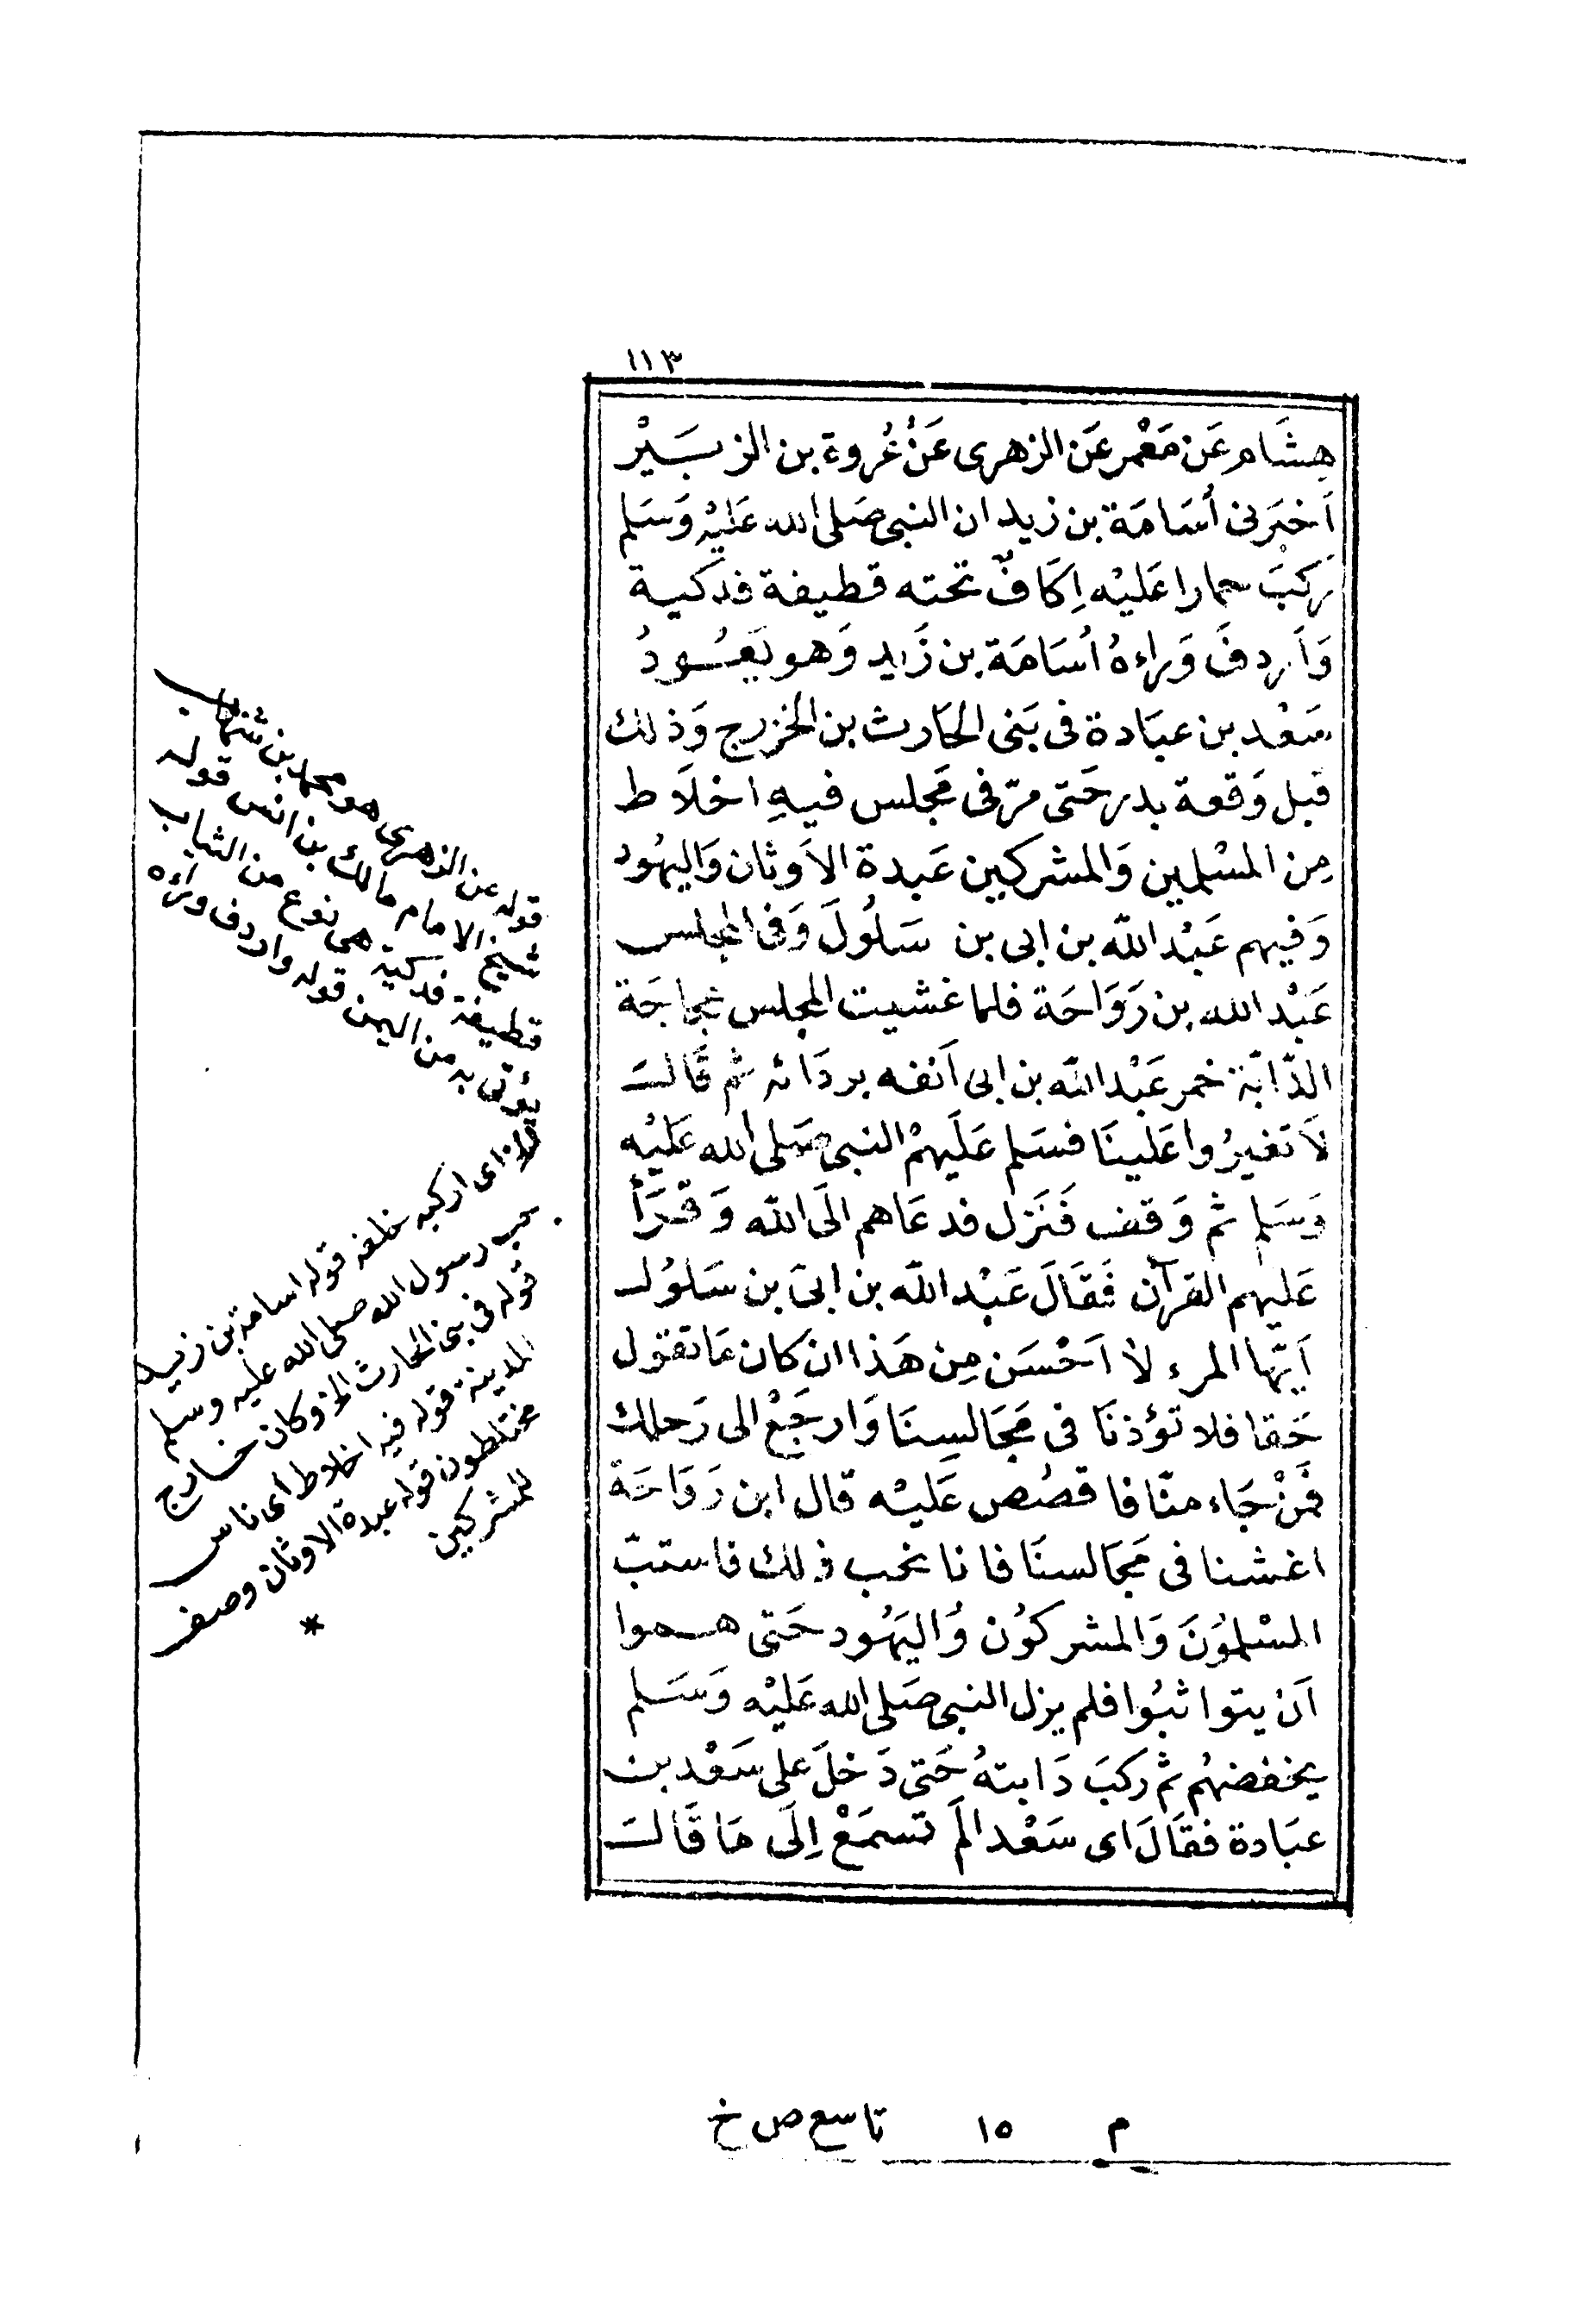 ١١٣
هِشَام عَن مَعْمر عَن الزهرى عَنْ عُروة بن الزبَيْر
أَخبَرنى أُسَامَة بن زيد ان النبى صَلى الله عَليْه وَسَلم
رَكبَ حمارا عَليْه اِكَافٌ تحته قطيفة فدَكية
وَأَردفَ وَراءهُ اُسَامَة بن زَيد وَهو يَعُودُ
سَعْد بن عبَادة فى بَنى الحَارث بن الخزرج وَذلك
قبل وَقعة بدر حَتى مرّ فى مَجلس فيهِ اخلَاط
مِن المسْلمين وَالمشركين عَبدة الاَوثان وَاليهُود
وَفيهم عَبْد اللّه بن ابى بن سَلُولَ وَفى المجلس
عَبْد الله بن رَوَاحَة فلما غشيت المجلس عجاجَة
الدّابّة خمر عَبْد اللّه بن ابى اَنفه بردَائه ثم قَالَ
لاَ تغبرُوا عَلينَا فسَلم عَلَيهمْ النبى صَلى الله عَليْه
وَسَلم ثم وَقف فَنَزل فدعَاهم الَى اللّه وَقَرَأَ
عَليهم القرآن فَقَالَ عَبْد اللّه بن ابىَ بن سَلوُل
اَيّها المرء لاَ اَحْسَن مِن هَذا ان كان مَا تقول
حَقا فلا تؤذنَا فى مَجَالسِنَا وَارجَعْ الى رَحلك
فَمَنْ جَاء منّا فاقصُص عَليْه قال ابن رَوَاحَة
اغشنا فى مَجَالسنَا فانا نحب ذلك فاستبّ
المسْلموُنَ وَالمشركوُن وَاليَهُود حَتى هموا
اَنْ يتواثبُوا فلم يزل النبى صَلى الله عَليْه وَسَلم
يخفضهُم ثم ركبَ دَابتهُ حَتى دَخلَ على سَعْد بن
عبَادة فقَالَ اى سَعْد الَم تسمَعْ اِلَى مَا قَالَ
قوله عن الزهرى هو محمد بن شهاب
شيخ الامام مالك بن انس قوله
قطيفة فدكية هى نوع من الثياب
يؤتى به من اليمن قوله واردف وراءه
الخ اى اركبه خلفه قوله اسامة بن زيد
حب رسول الله صلى الله عليه وسلم
قوله فى بنى الحارث الخ وكان خارج
المدينة قوله فيه اخلاط أى ناس
مختلطون قوله عبدة الاوثان وصف
للمشركين
*
م ١٥ تاسع ص خ